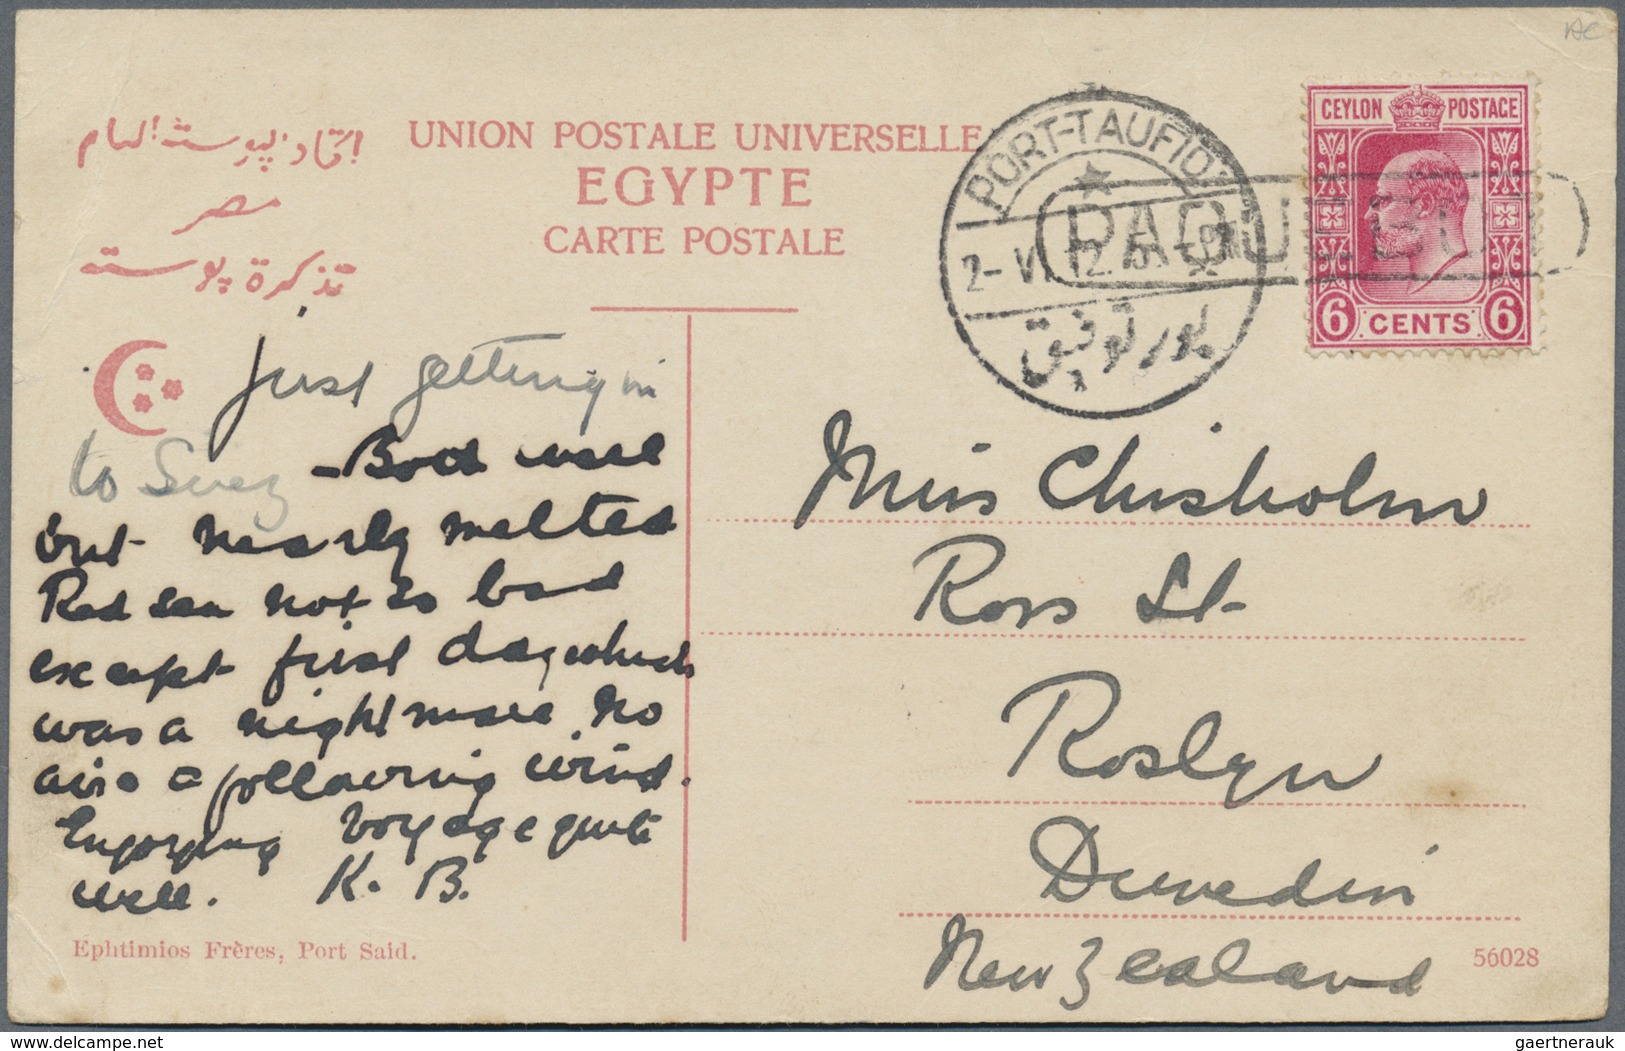 AC
اتحاد پوستة العام
مصر
تذكرة پوستة
UNION POSTALE UNIVERSELLE
EGYPTE
CARTE POSTALE
PORT-TAUFIQ
2-VI 12
بور توفيق
PAQUEBOT
CEYLON POSTAGE
6 CENTS 6
just getting in
to Suez - Both well
but nearly melted
Red Sea not so bad
except first day which
was a nightmare no
air & following wind.
Enjoying voyage quite
well. K. B.
Miss Chisholm
Ross St
Roslyn
Dunedin
New Zealand
Ephtimios Frères, Port Said.
56028
www.delcampe.net
gaertnerauk